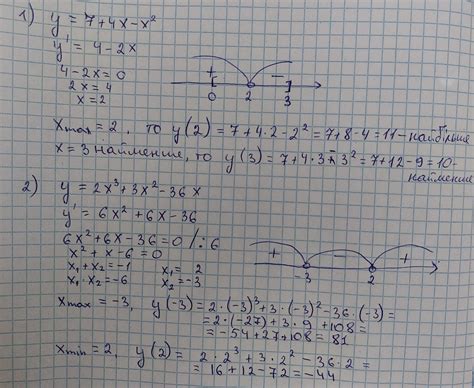 1) y = 7+4x-x²
y' = 4-2x
4-2x=0
2x=4
x=2
+ -
0 2 3
x max = 2, то y(2) = 7+4·2-2²=7+8-4=11-найбільше
x=3 найменше, то y(3)=7+4·3-3²=7+12-9=10-
найменше
2) y = 2x³+3x²-36x
y' = 6x²+6x-36
6x²+6x-36=0 /:6
x²+x-6=0
x₁+x₂=-1 x₁= 2
x₁·x₂=-6 x₂=-3
+ - +
-3 2
x max = -3, y(-3)=2·(-3)³+3·(-3)²-36·(-3)=
=2·(-27)+3·9+108=
=-54+27+108=81
x min = 2, y(2)= 2·2³+3·2²-36·2=
=16+12-72=-44